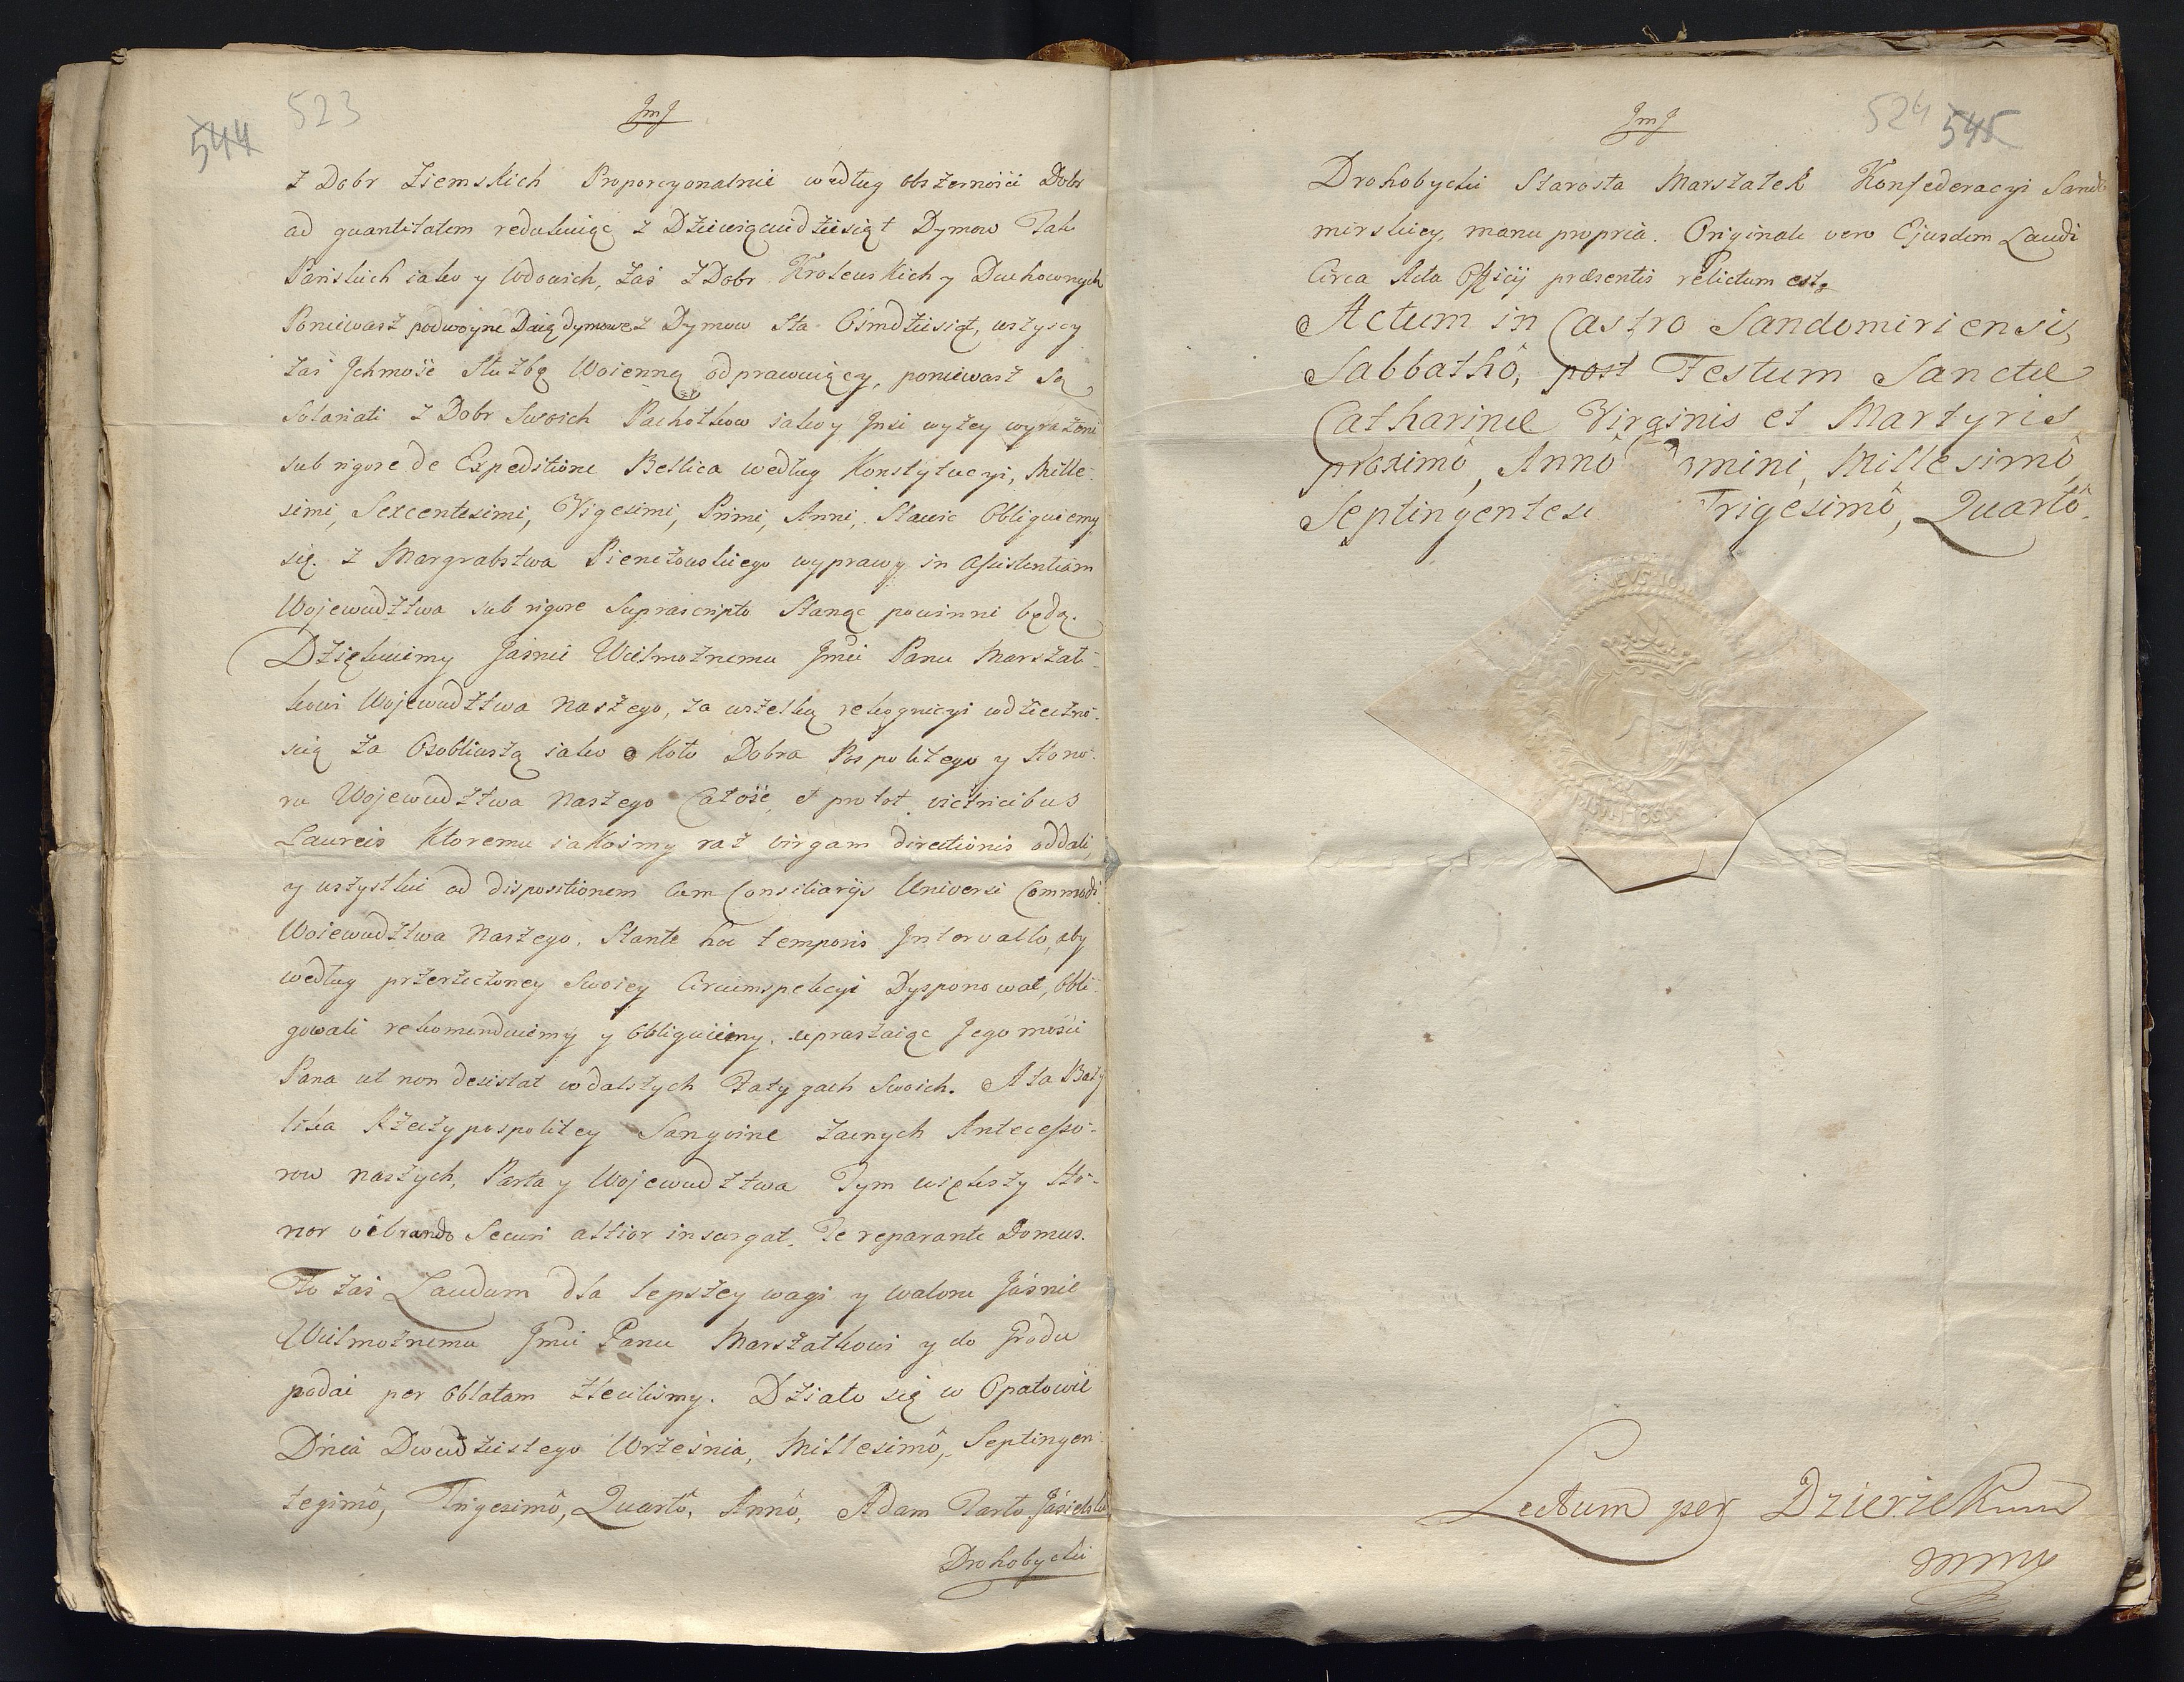 544 523
JmJ
z Dobr Ziemskich Proporcyonalnie według obszerności Dobr
ad quantitatem redukuiąc z Dziewiąciudziesiąt Dymow Tak
Pańskich iako y Wdowich, zaś z Dobr Krolewskich y Duchownych
Poniewasz podwoyne Daią dymowe z Dymow Sta Ośmdziesiąt, wszyscy
zaś Jchmość Służbę Woienną odprawuiący, poniewasz są
Solariati z Dobr Swoich Pachołkow iako y Jnsi wyżey wyrażeni
sub rigore de Expeditione Bellica według Konstytucyi, Mille-
simi, Sexcentesimi, Vigesimi, Primi, Anni, Stawić Obliguiemy
się. z Margrabstwa Pienczowskiego wyprawy in assistentiam
Wojewudztwa sub rigore Suprascripto Stanąć powinni będą.
Dziękuiemy Jaśnie Wielmożnemu Jmći Panu Marszał-
kowi Wojewudztwa Naszego, za wszelką rekognicyi wdzięczno-
ścią za Osobliwszą iako koło Dobra Pospolitego y Hono-
ru Wojewudztwa Naszego Całość, et pro tot victricibus
Laureis Ktoremu iakośmy raz virgam directionis oddali,
y wszystkie ad dispositionem cum Consiliarijs Universi Commodi
Woiewudztwa Naszego, Stante hoc temporis Intervallo, aby
według przerzeczoney Swoiey Circumspekcyi Dysponował, obli-
gowali rekomenduiemy y obliguiemy, upraszaiąc Jego mości
Pana ut non desistat w dalszych Fatygach Swoich. A ta Bazy
lika Rzeczypospolitey Sangvine zacnych Antecesso-
row naszych, Parta y Wojewudztwa Tym większy Ho-
nor vibrando Securi altior insurgat, Te reparante Domus.
To zaś Laudum dla lepszey wagi y waloru Jaśnie
Wielmożnemu Jmći Panu Marszałkowi y do Grodu
podać per oblatam zleciliśmy. Działo się w Opatowie
Dnia Dwudziestego Września, Millesimô, Septingen
tegimô, Trigesimô, Quartô, Annô, Adam Tarło Jasielski
Drohobycki
JmJ
524 545
Drohobycki Starosta Marszałek Konfederacyi Sando
mirskiey, manu propria. Originale vero Ejusdem Laudi
Circa Acta Officij præsentis relictum est.
Actum in Castro Sandomiriensi,
Sabbathô, post Festum Sanctæ
Catharinæ Virginis et Martyris
proximô, Annô mini, Millesimô,
Septingentesi Trigesimô, Quartô.
Lectum per Dzierzekum
mmp